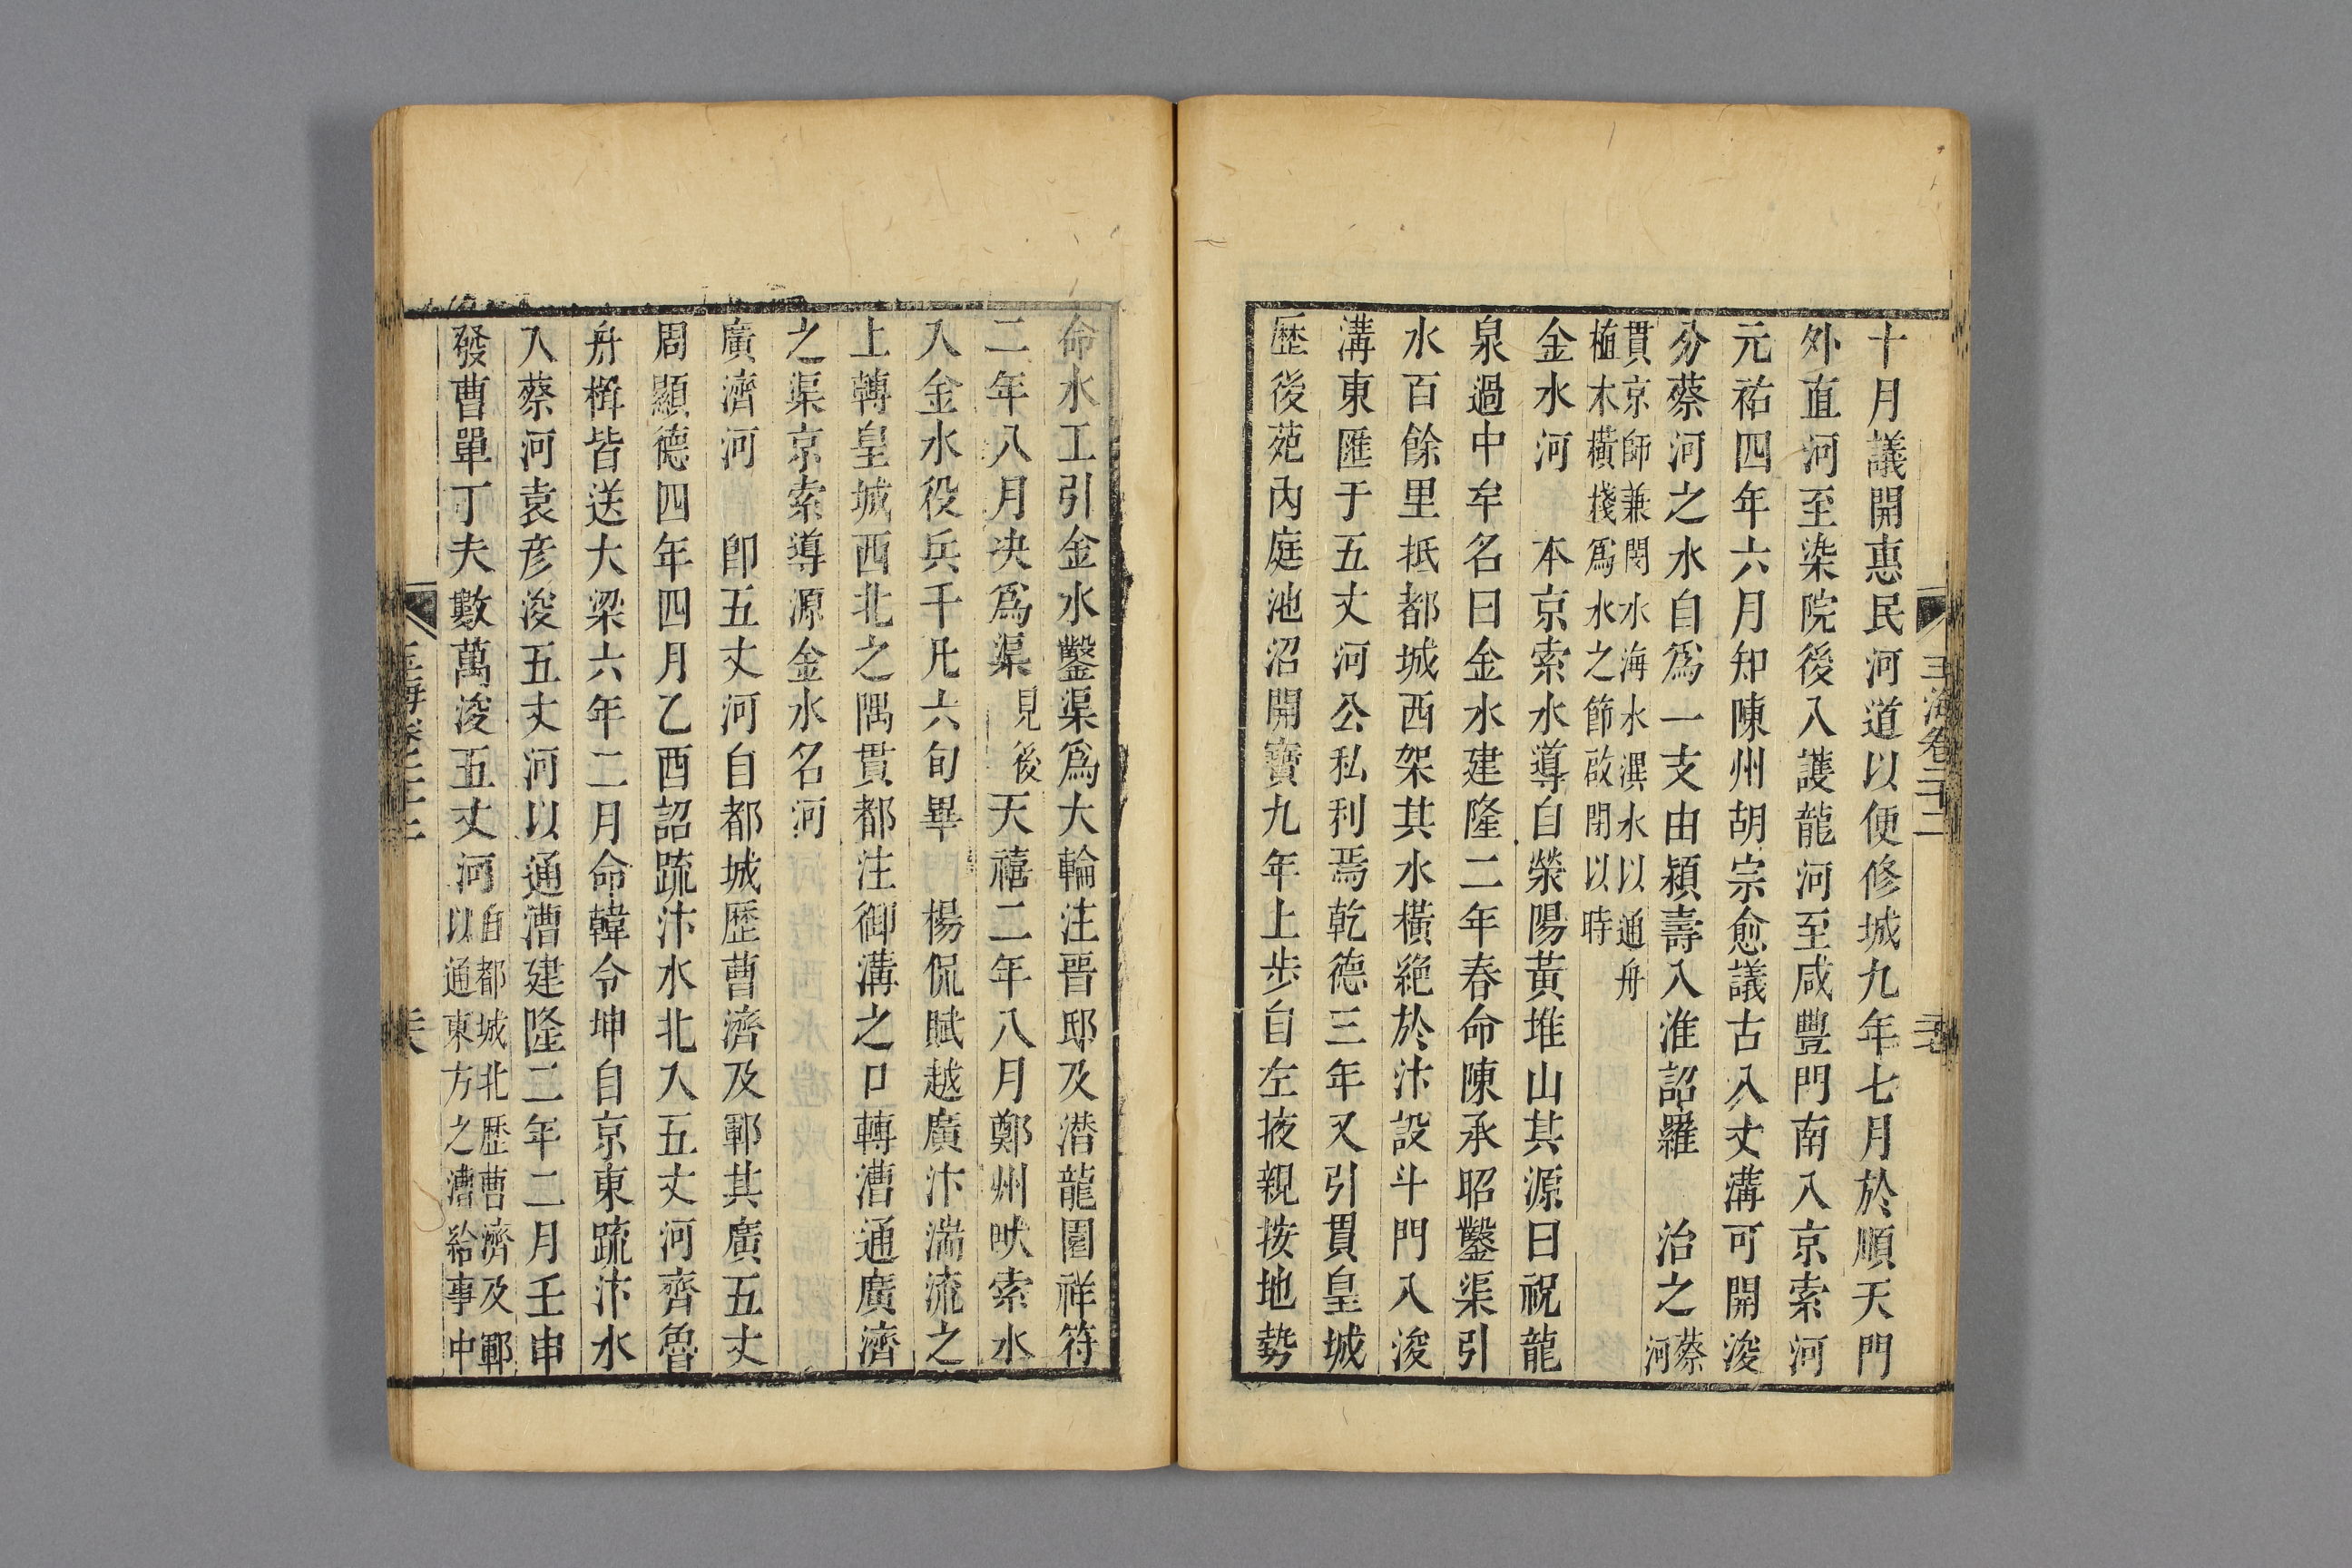 十月議開惠民河道以便修城九年七月於順天門
外直河至染院後入護龍河至咸豐門南入京索河
元祐四年六月知陳州胡宗愈議古八丈溝可開浚
分蔡河之水自爲一支由潁壽入淮詔羅 治之蔡河
貫京師兼閔水海水潩水以通舟
植木橫棧爲水之節啟閉以時
金水河 本京索水導自滎陽黃堆山其源曰祝龍
泉過中牟名曰金水建隆二年春命陳承昭鑿渠引
水百餘里抵都城西架其水橫絶於汴設斗門入浚
溝東匯于五丈河公私利焉乾德三年又引貫皇城
歷後苑內庭池沼開寶九年上步自左掖親按地勢
命水工引金水鑿渠爲大輪注晉邸及潜龍園祥符
二年八月决爲渠見後天禧二年八月鄭州㽹索水
入金水役兵千凡六旬畢 楊侃賦越廣汴湍流之
上轉皇城西北之隅貫都注御溝之口轉漕通廣濟
之渠京索導源金水名河
廣濟河 卽五丈河自都城歷曹濟及鄆其廣五丈
周顯德四年四月乙酉詔疏汴水北入五丈河齊魯
舟楫皆送大梁六年二月命韓令坤自京東疏汴水
入蔡河袁彦浚五丈河以通漕建隆二年二月壬申
發曹單丁夫數萬浚五丈河自都城北歷曹濟及鄆
以通東方之漕給事中
玉海卷二十二
玉海卷二十二